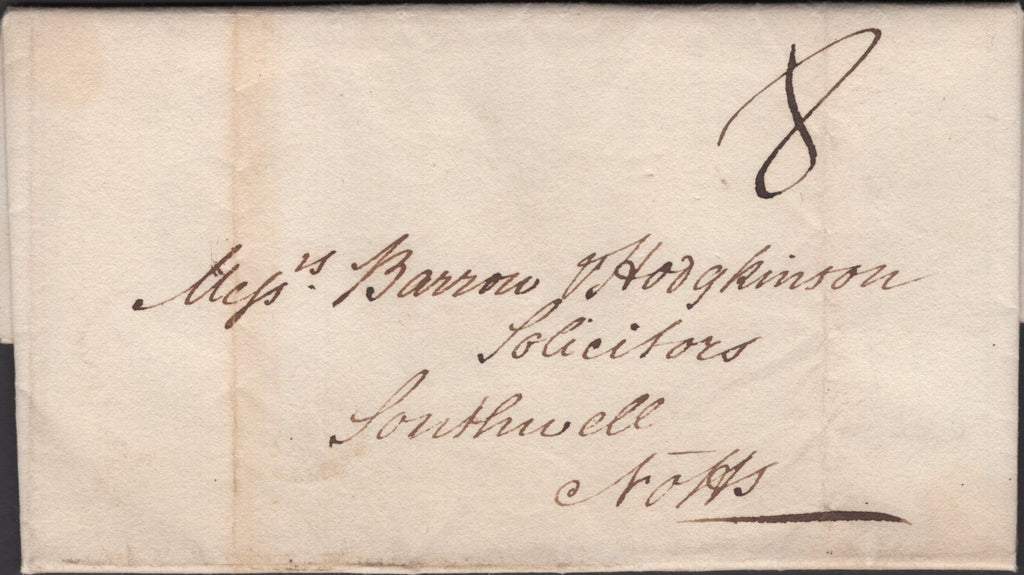 8
Messrs. Barrow & Hodgkinson
Solicitors
Southwell
Notts